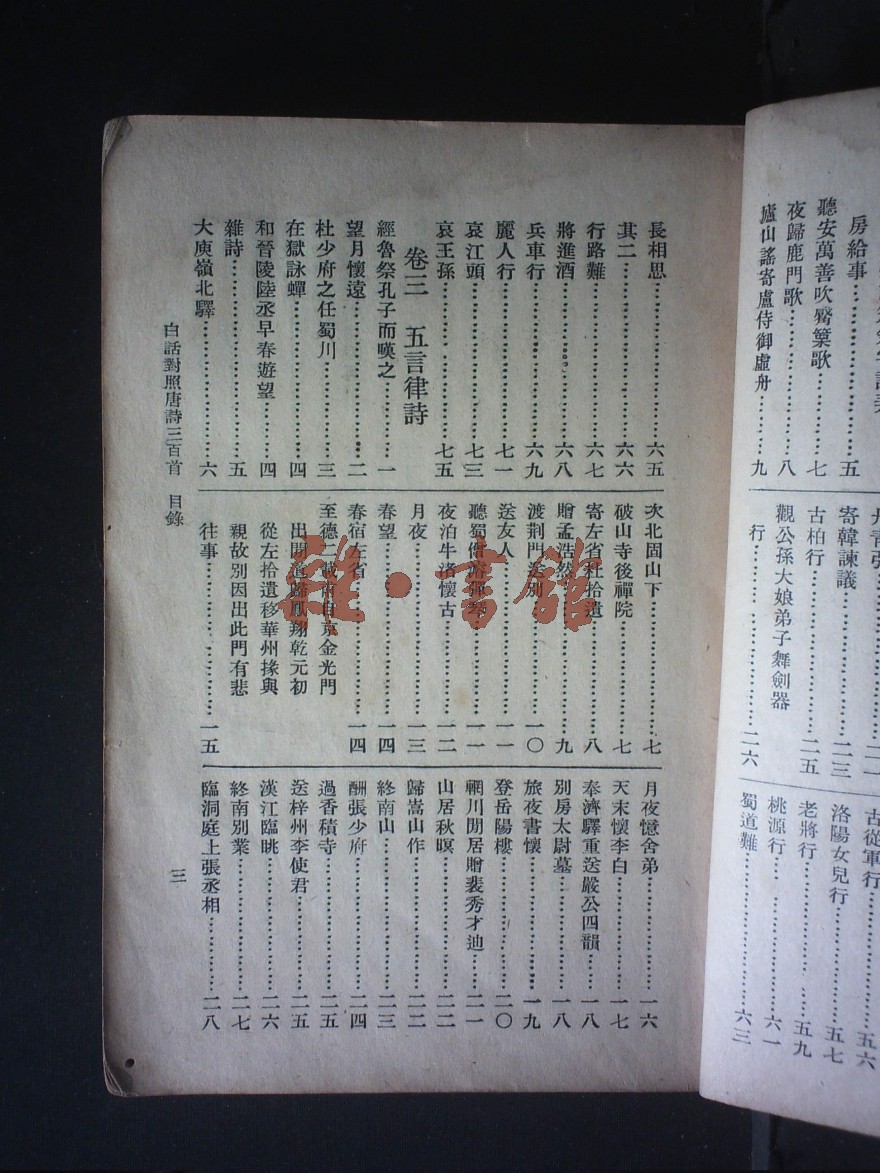 房給事……五
聽安萬善吹觱篥歌……七
夜歸鹿門歌……八
廬山謠寄盧侍御虛舟……九
寄韓諫議……二三
古柏行……二五
觀公孫大娘弟子舞劍器
行……二六
古從軍行……五六
洛陽女兒行……五七
老將行……五九
桃源行……六一
蜀道難……六三
長相思……六五
其二……六六
行路難……六七
將進酒……六八
兵車行……六九
麗人行……七一
哀江頭……七三
哀王孫……七五
卷三 五言律詩
經魯祭孔子而嘆之……一
望月懷遠……二
杜少府之任蜀川……三
在獄詠蟬……四
和晉陵陸丞早春遊望……四
雜詩……五
大庾嶺北驛……六
次北固山下……七
破山寺後禪院……七
寄左省杜拾遺……八
贈孟浩然……九
渡荆門送別……一〇
送友人……一一
聽蜀僧濬彈琴……一一
夜泊牛渚懷古……一二
月夜……一三
春望……一四
春宿左省……一四
至德二載甫自京金光門
出間道歸鳳翔乾元初
從左拾遺移華州掾與
親故別因出此門有悲
往事……一五
月夜憶舍弟……一六
天末懷李白……一七
奉濟驛重送嚴公四韻……一八
別房太尉墓……一八
旅夜書懷……一九
登岳陽樓……二〇
輞川閒居贈裴秀才迪……二一
山居秋暝……二二
歸嵩山作……二二
終南山……二三
酬張少府……二四
過香積寺……二五
送梓州李使君……二五
漢江臨眺……二六
終南別業……二七
臨洞庭上張丞相……二八
白話對照唐詩三百首 目錄
三
雜·書館